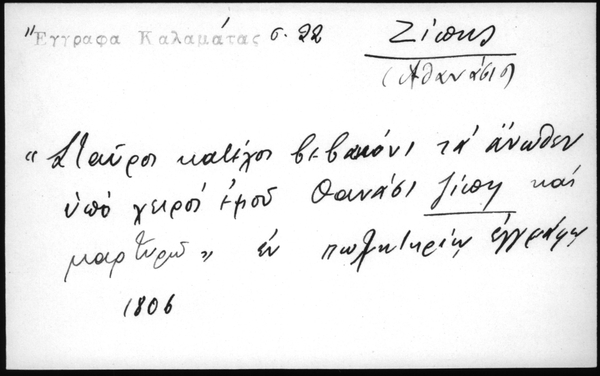 "Έγγραφα Καλαμάτας σ. 22 Ζίπης
(Αθανάσιος)
"Σταύρος κατίγος βεβαιόνι τά άνωθεν
υπό χειρός εμού Θανάσι Ζίπη καί
μαρτυρώ" εν πωλητηρίω εγγράφω
1806